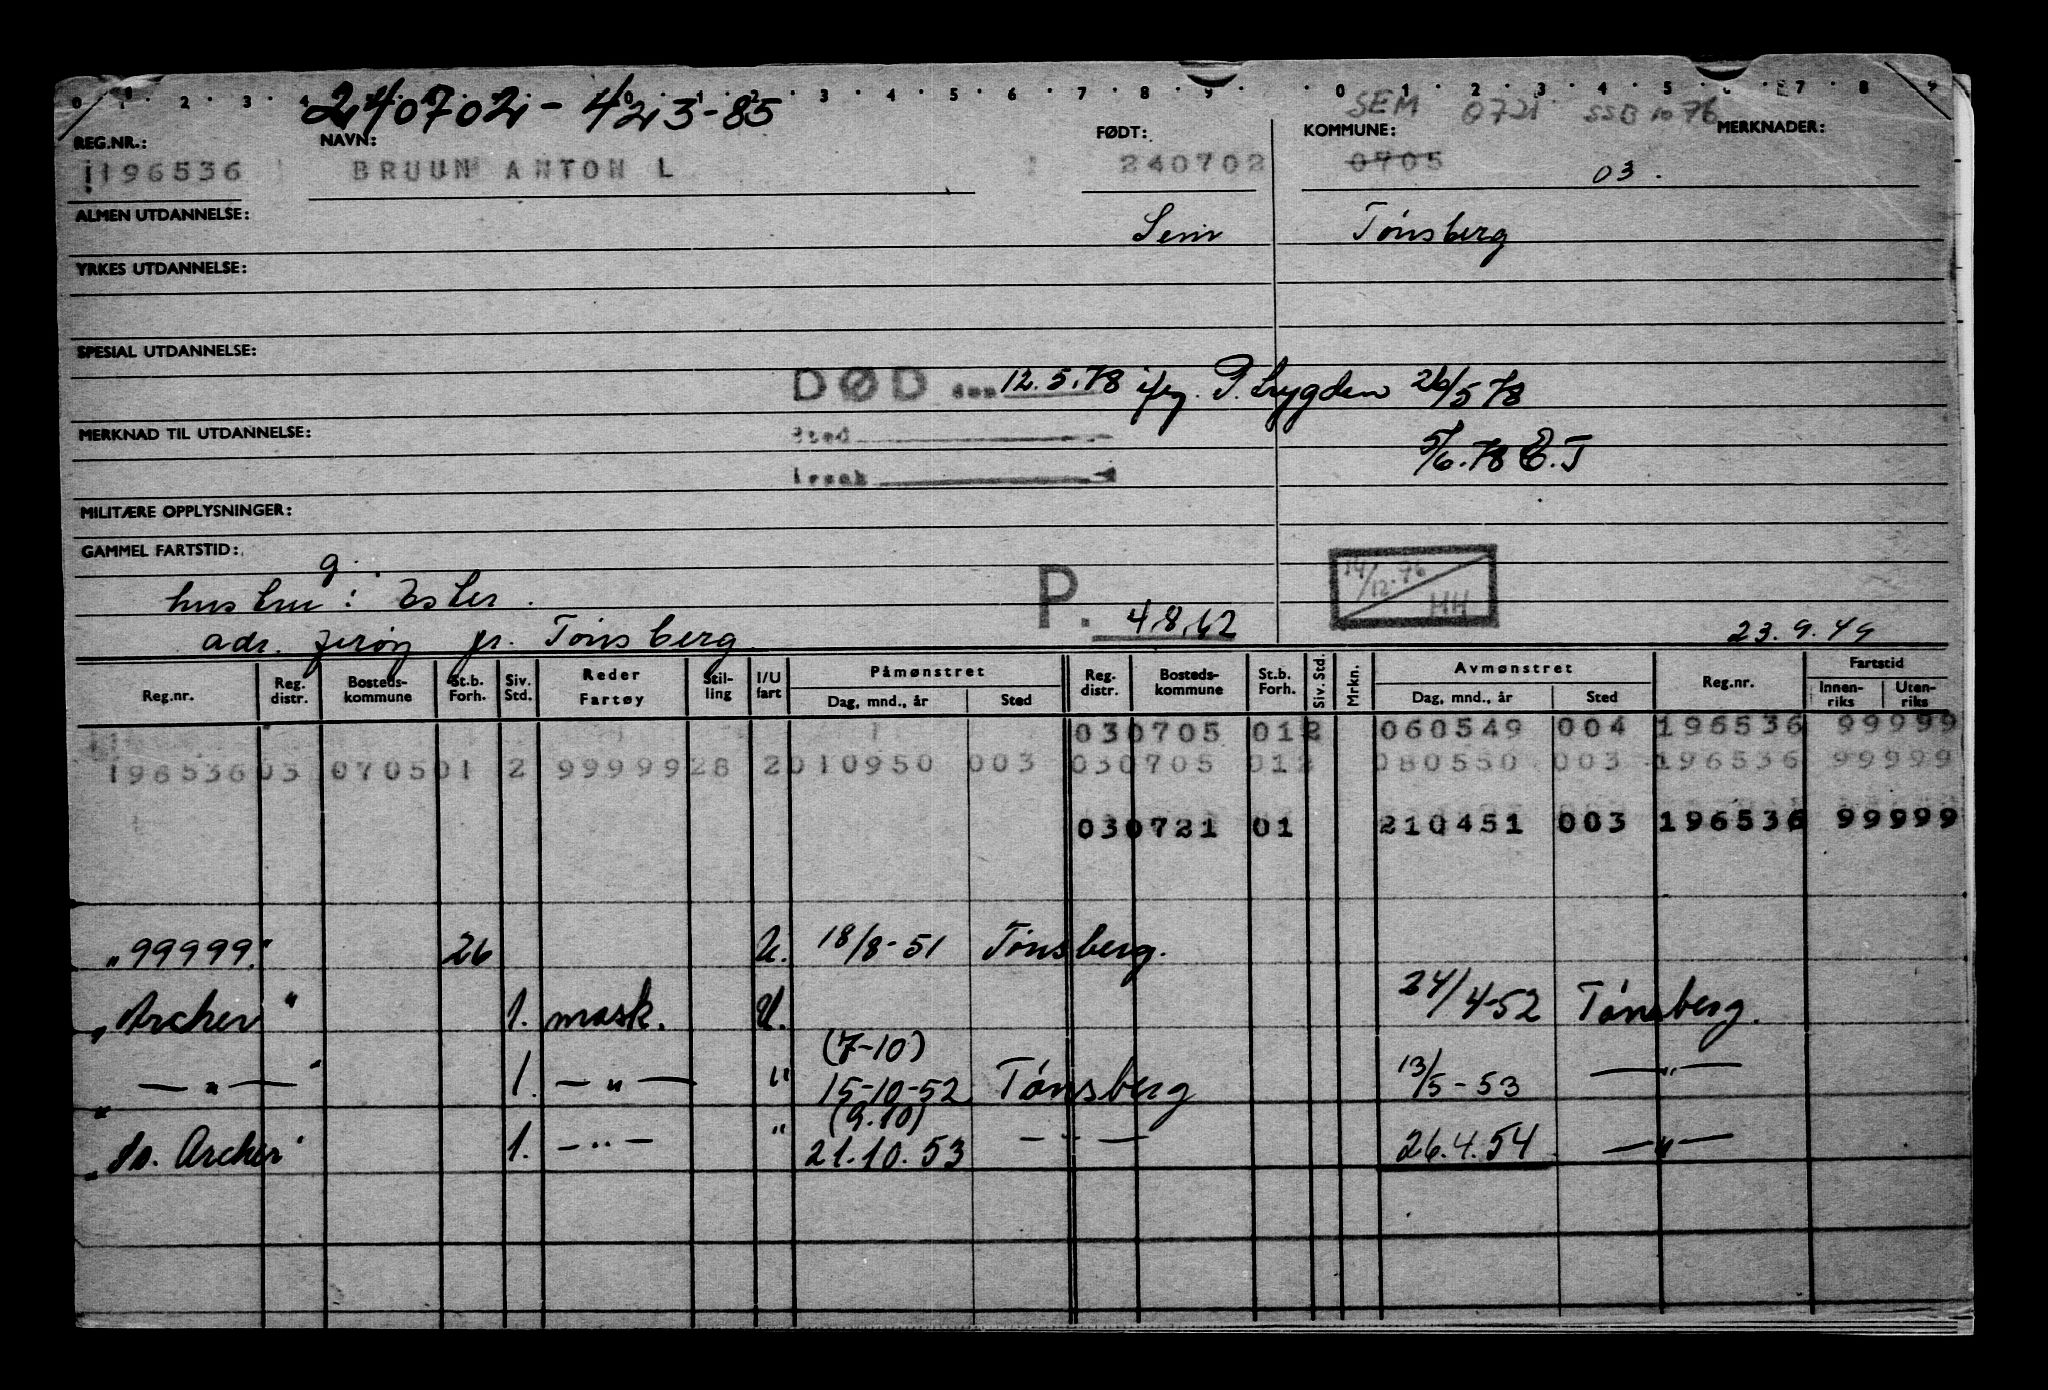 240702-4213-85
SEM 0721 SSB 10 76
REG.NR.: NAVN: FØDT: KOMMUNE: MERKNADER:
196536 BRUUN ANTON L 240702 0705 03.
ALMEN UTDANNELSE: Sem Tönsberg
YRKES UTDANNELSE:
SPESIAL UTDANNELSE:
DØD den 12.5.78 ifg. P. Lygden 26/5 78
MERKNAD TIL UTDANNELSE: Sted 5/6.78 E.T
Årsak
MILITÆRE OPPLYSNINGER:
GAMMEL FARTSTID:
g. 14/12-76
hustru: Ester. P. HH
adr. Jerøy pr. Tönsberg. 4.8.62 23.9.49
Reg.nr. Reg. distr. Bosteds-kommune St.b. Forh. Siv. Std. Reder Fartøy Stil-ling I/U fart Påmønstret Dag, mnd., år Sted Reg. distr. Bosteds-kommune St.b. Forh. Siv. Std. Mrkn. Avmønstret Dag, mnd., år Sted Reg.nr. Fartstid Innen-riks Uten-riks
030705 012 060549 004 196536 99999
196536 03 070501 2 9999928 2010950 003 030705 012 080550 003 196536 99999
030721 01 210451 003 196536 99999
"99999." 26 U. 18/8-51 Tönsberg.
"Archer" 1. mask. U. 24/4-52 Tönsberg.
(7-10)
" — " — " 1. — " — " 15-10-52 Tönsberg 13/5-53 — " —
(9.10)
"So. Archer" 1. — " — " 21.10.53 — " — 26.4.54 — " —